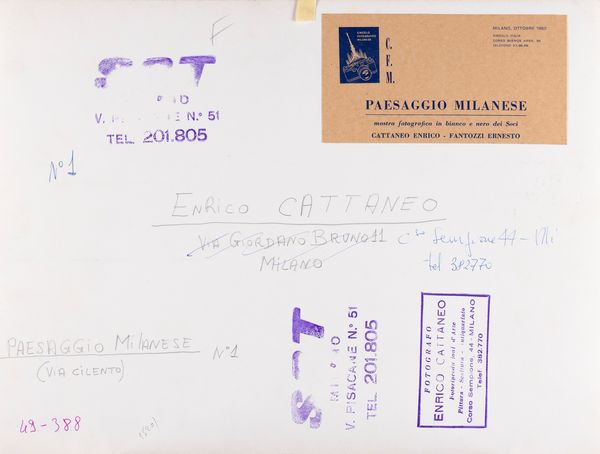 F
CIRCOLO
FOTOGRAFICO
MILANESE
C.
F.
M.
MILANO, OTTOBRE 1962
CIRCOLO ITALIA
CORSO BUENOS AIRES,
TELEFONO
PAESAGGIO MILANESE
mostra fotografica in bianco e nero dei Soci
CATTANEO ENRICO - FANTOZZI ERNESTO
V. NE N.° 51
TEL. 201.805
N° 1
ENRICO CATTANEO
VIA GIORDANO BRUNO 11 C.so Sempione 44 - Mi
MILANO tel 382770
PAESAGGIO MILANESE N° 1
(VIA CILENTO)
49-388
V. PISACANE N.° 51
TEL. 201.805
FOTOGRAFO
ENRICO CATTANEO
Fotoriproduzioni d'Arte
Pittura - Scultura - Antiquariato
Corso Sempione 44 - MILANO
Telef 382.770